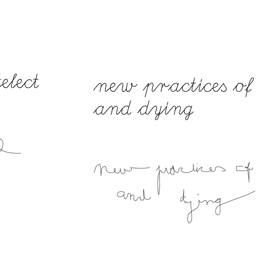 new practices of
and dying
new practices of
and dying